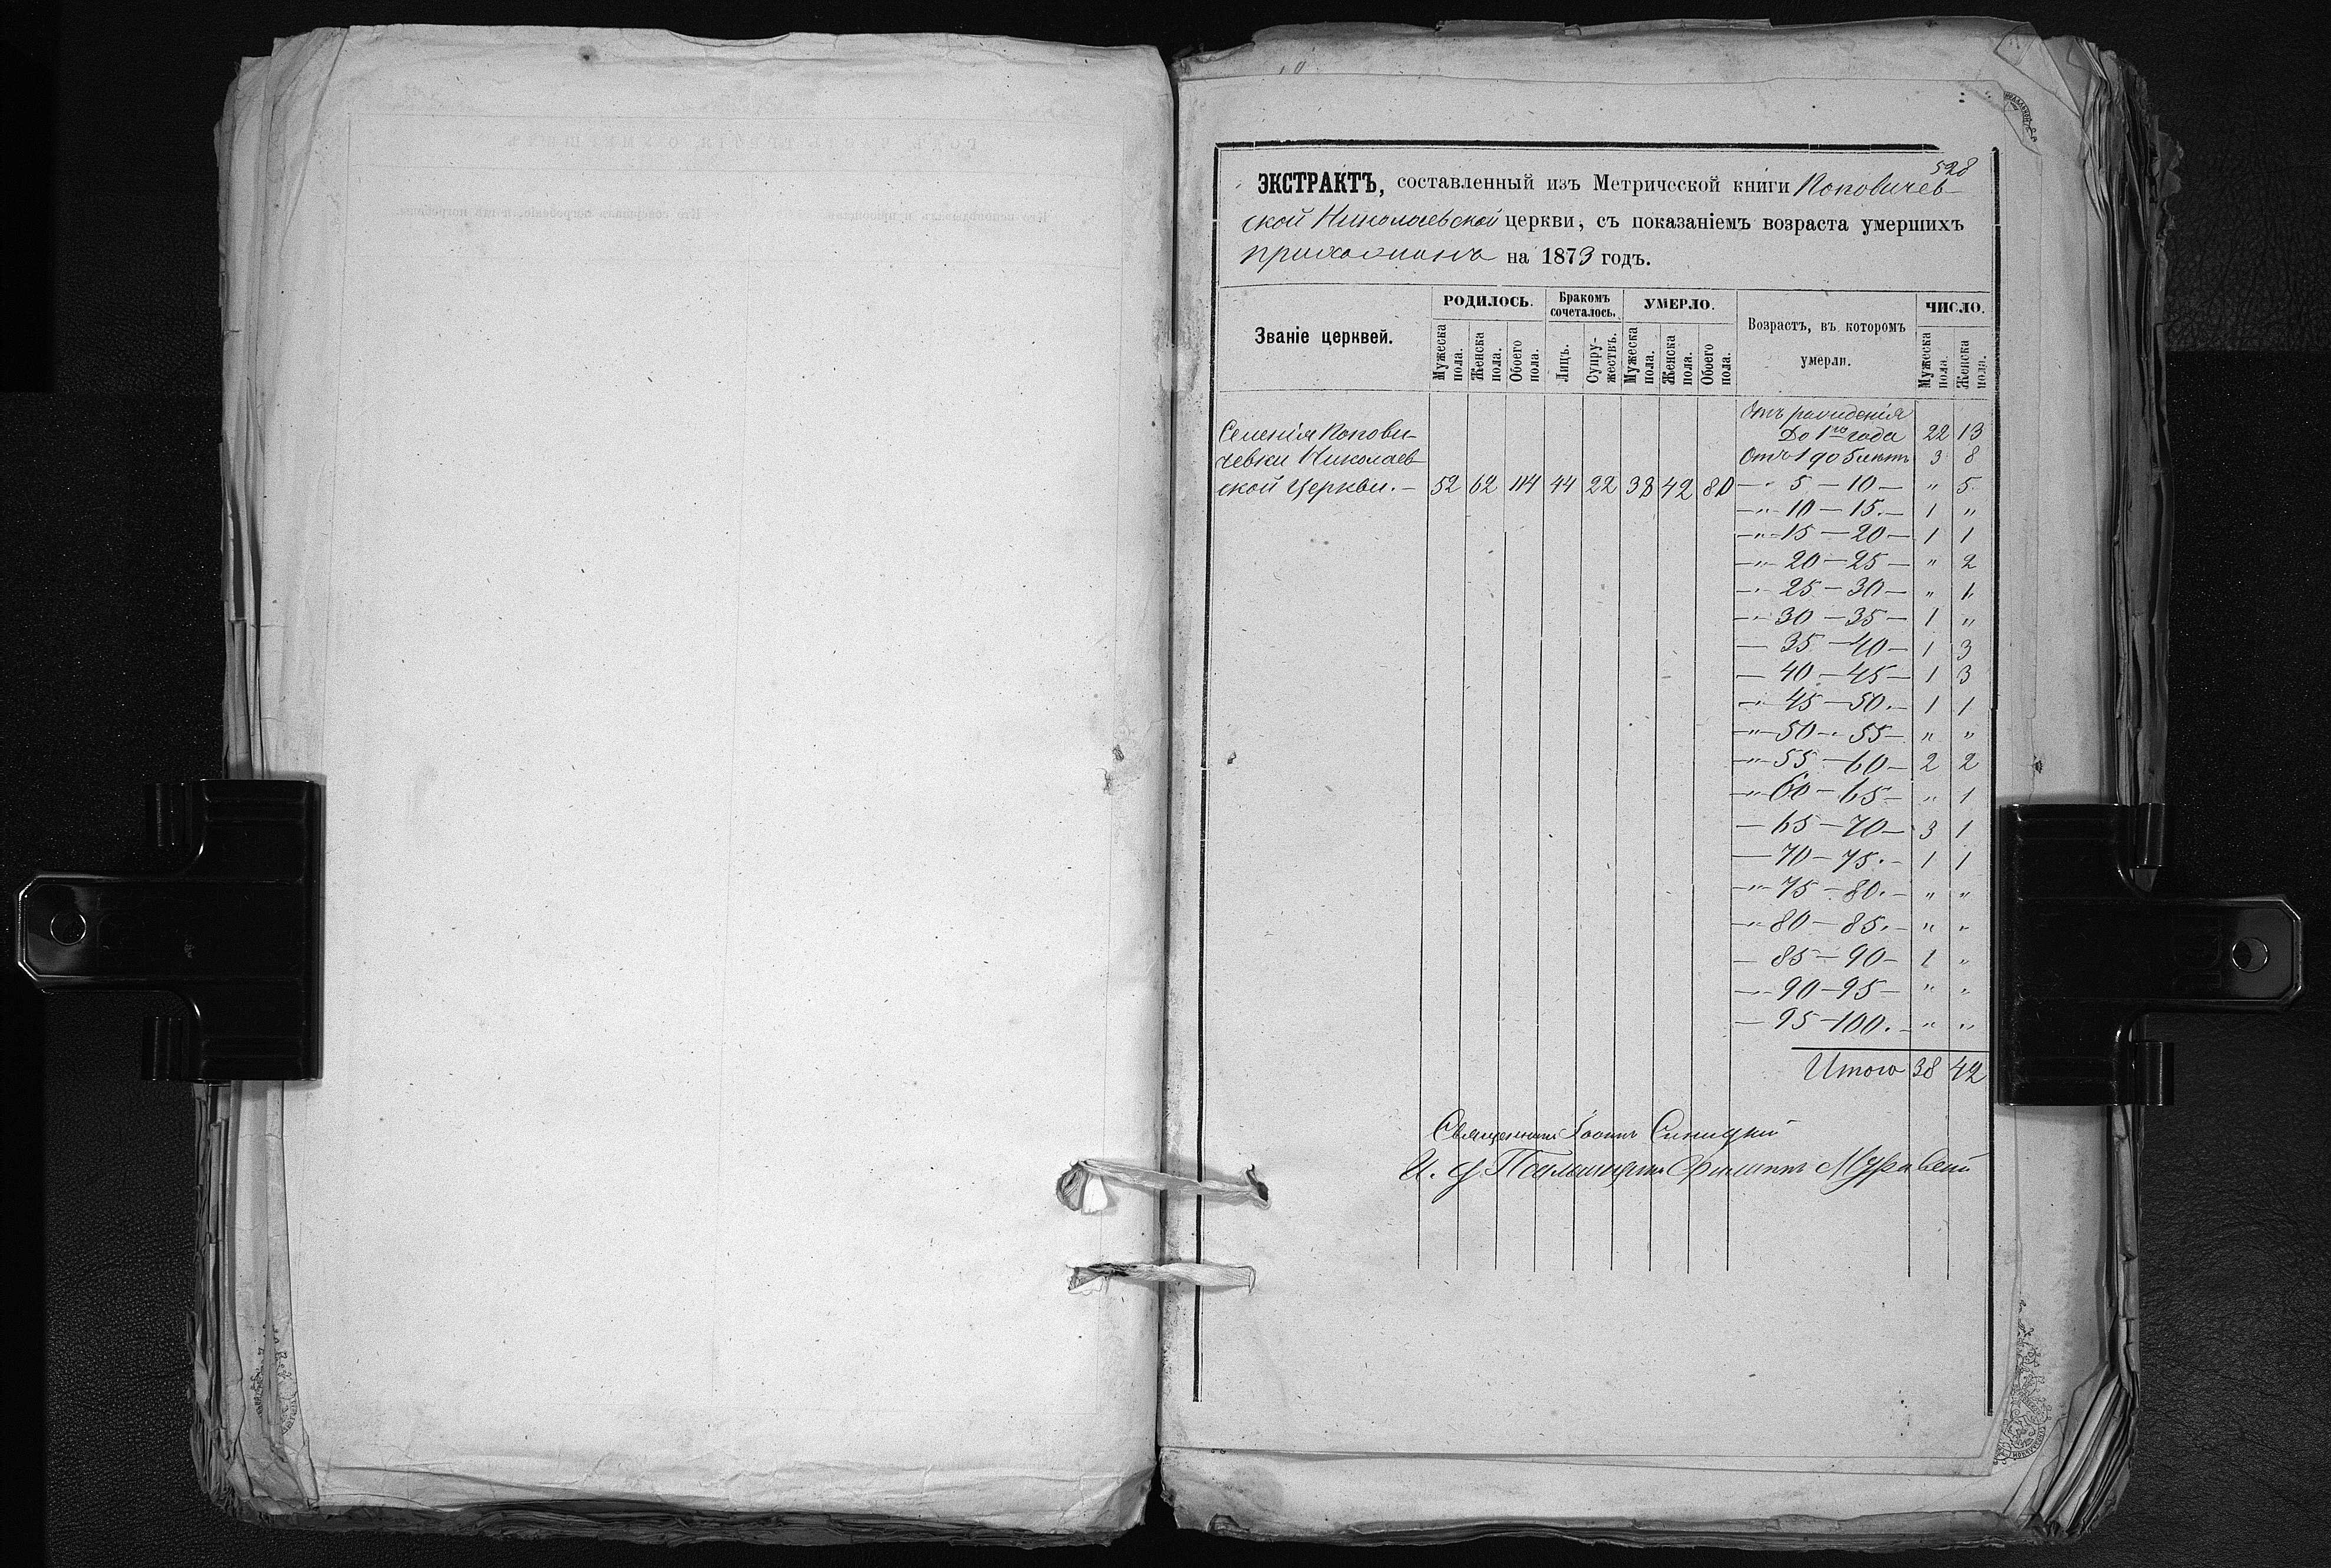 528
ЭКСТРАКТЪ, составленный изъ Метрической книги Поповичев-
ской Николаевской церкви, съ показаніемъ возраста умершихъ
прихожанъ на 1873 годъ.
Званіе церквей. РОДИЛОСЬ. Бракомъ сочеталось. УМЕРЛО. Возрастъ, въ которомъ умерли. ЧИСЛО.
Мужеска пола. Женска пола. Обоего пола. Лицъ. Супружествъ. Мужеска пола. Женска пола. Обоего пола. Мужеска пола. Женска пола.
Отъ рожденія
Селенія Попови- До 1го года 22 13
чевки Николаев- Отъ 1 до 5 лѣтъ 3 8
ской Церкви. — 52 62 114 44 22 38 42 80 — „ 5 — 10 — „ 5
— „ 10 — 15. — 1 „
— „ 15 — 20 — 1 1
— „ 20 — 25 — „ 2
— „ 25 — 30 — „ 1
— „ 30 — 35 — 1 „
— 35 — 40 — 1 3
— 40 — 45 — 1 3
— „ 45 — 50. — 1 1
— „ 50 — 55 — „ „
— „ 55 — 60 — 2 2
— „ 60 — 65 — „ 1
— 65 — 70 — 3 1
— 70 — 75. — 1 1
— „ 75 — 80. — „ „
— „ 80 — 85. — „ „
— 85 — 90 — 1 „
— „ 90 — 95 — „ „
— 95 — 100. — „ „
Итого 38 42
Священникъ Іоаннъ Синицкій
И. д. Псаломщика Филиппъ Муравскій